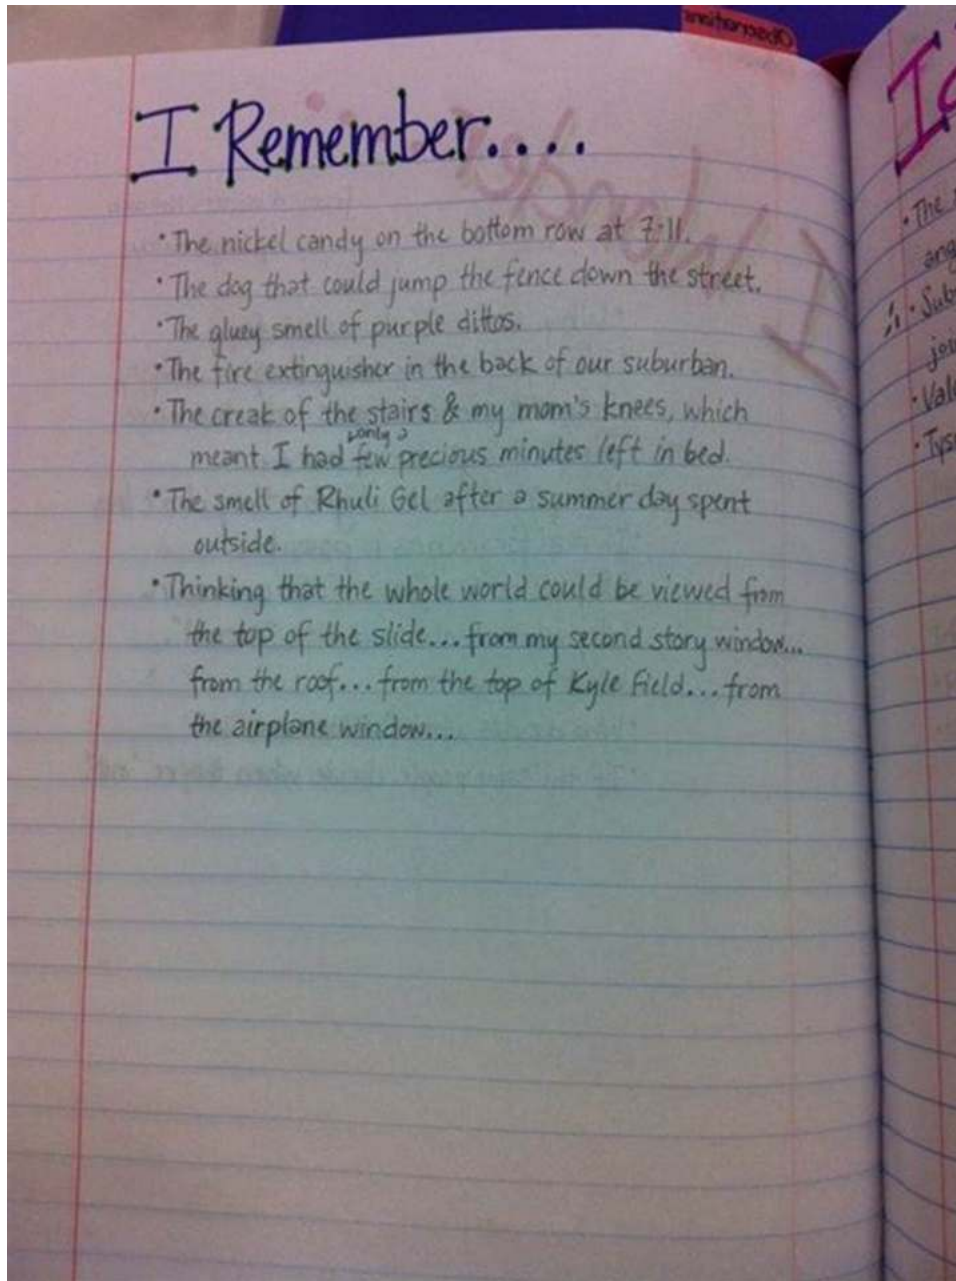 Observations
I Remember....
• The nickel candy on the bottom row at 7-11.
• The dog that could jump the fence down the street.
• The gluey smell of purple dittos.
• The fire extinguisher in the back of our suburban.
• The creak of the stairs & my mom's knees, which
only a
meant I had few precious minutes left in bed.
• The smell of Rhuli Gel after a summer day spent
outside.
• Thinking that the whole world could be viewed from
the top of the slide...from my second story window...
from the roof...from the top of Kyle Field...from
the airplane window...
I Wonder
• The